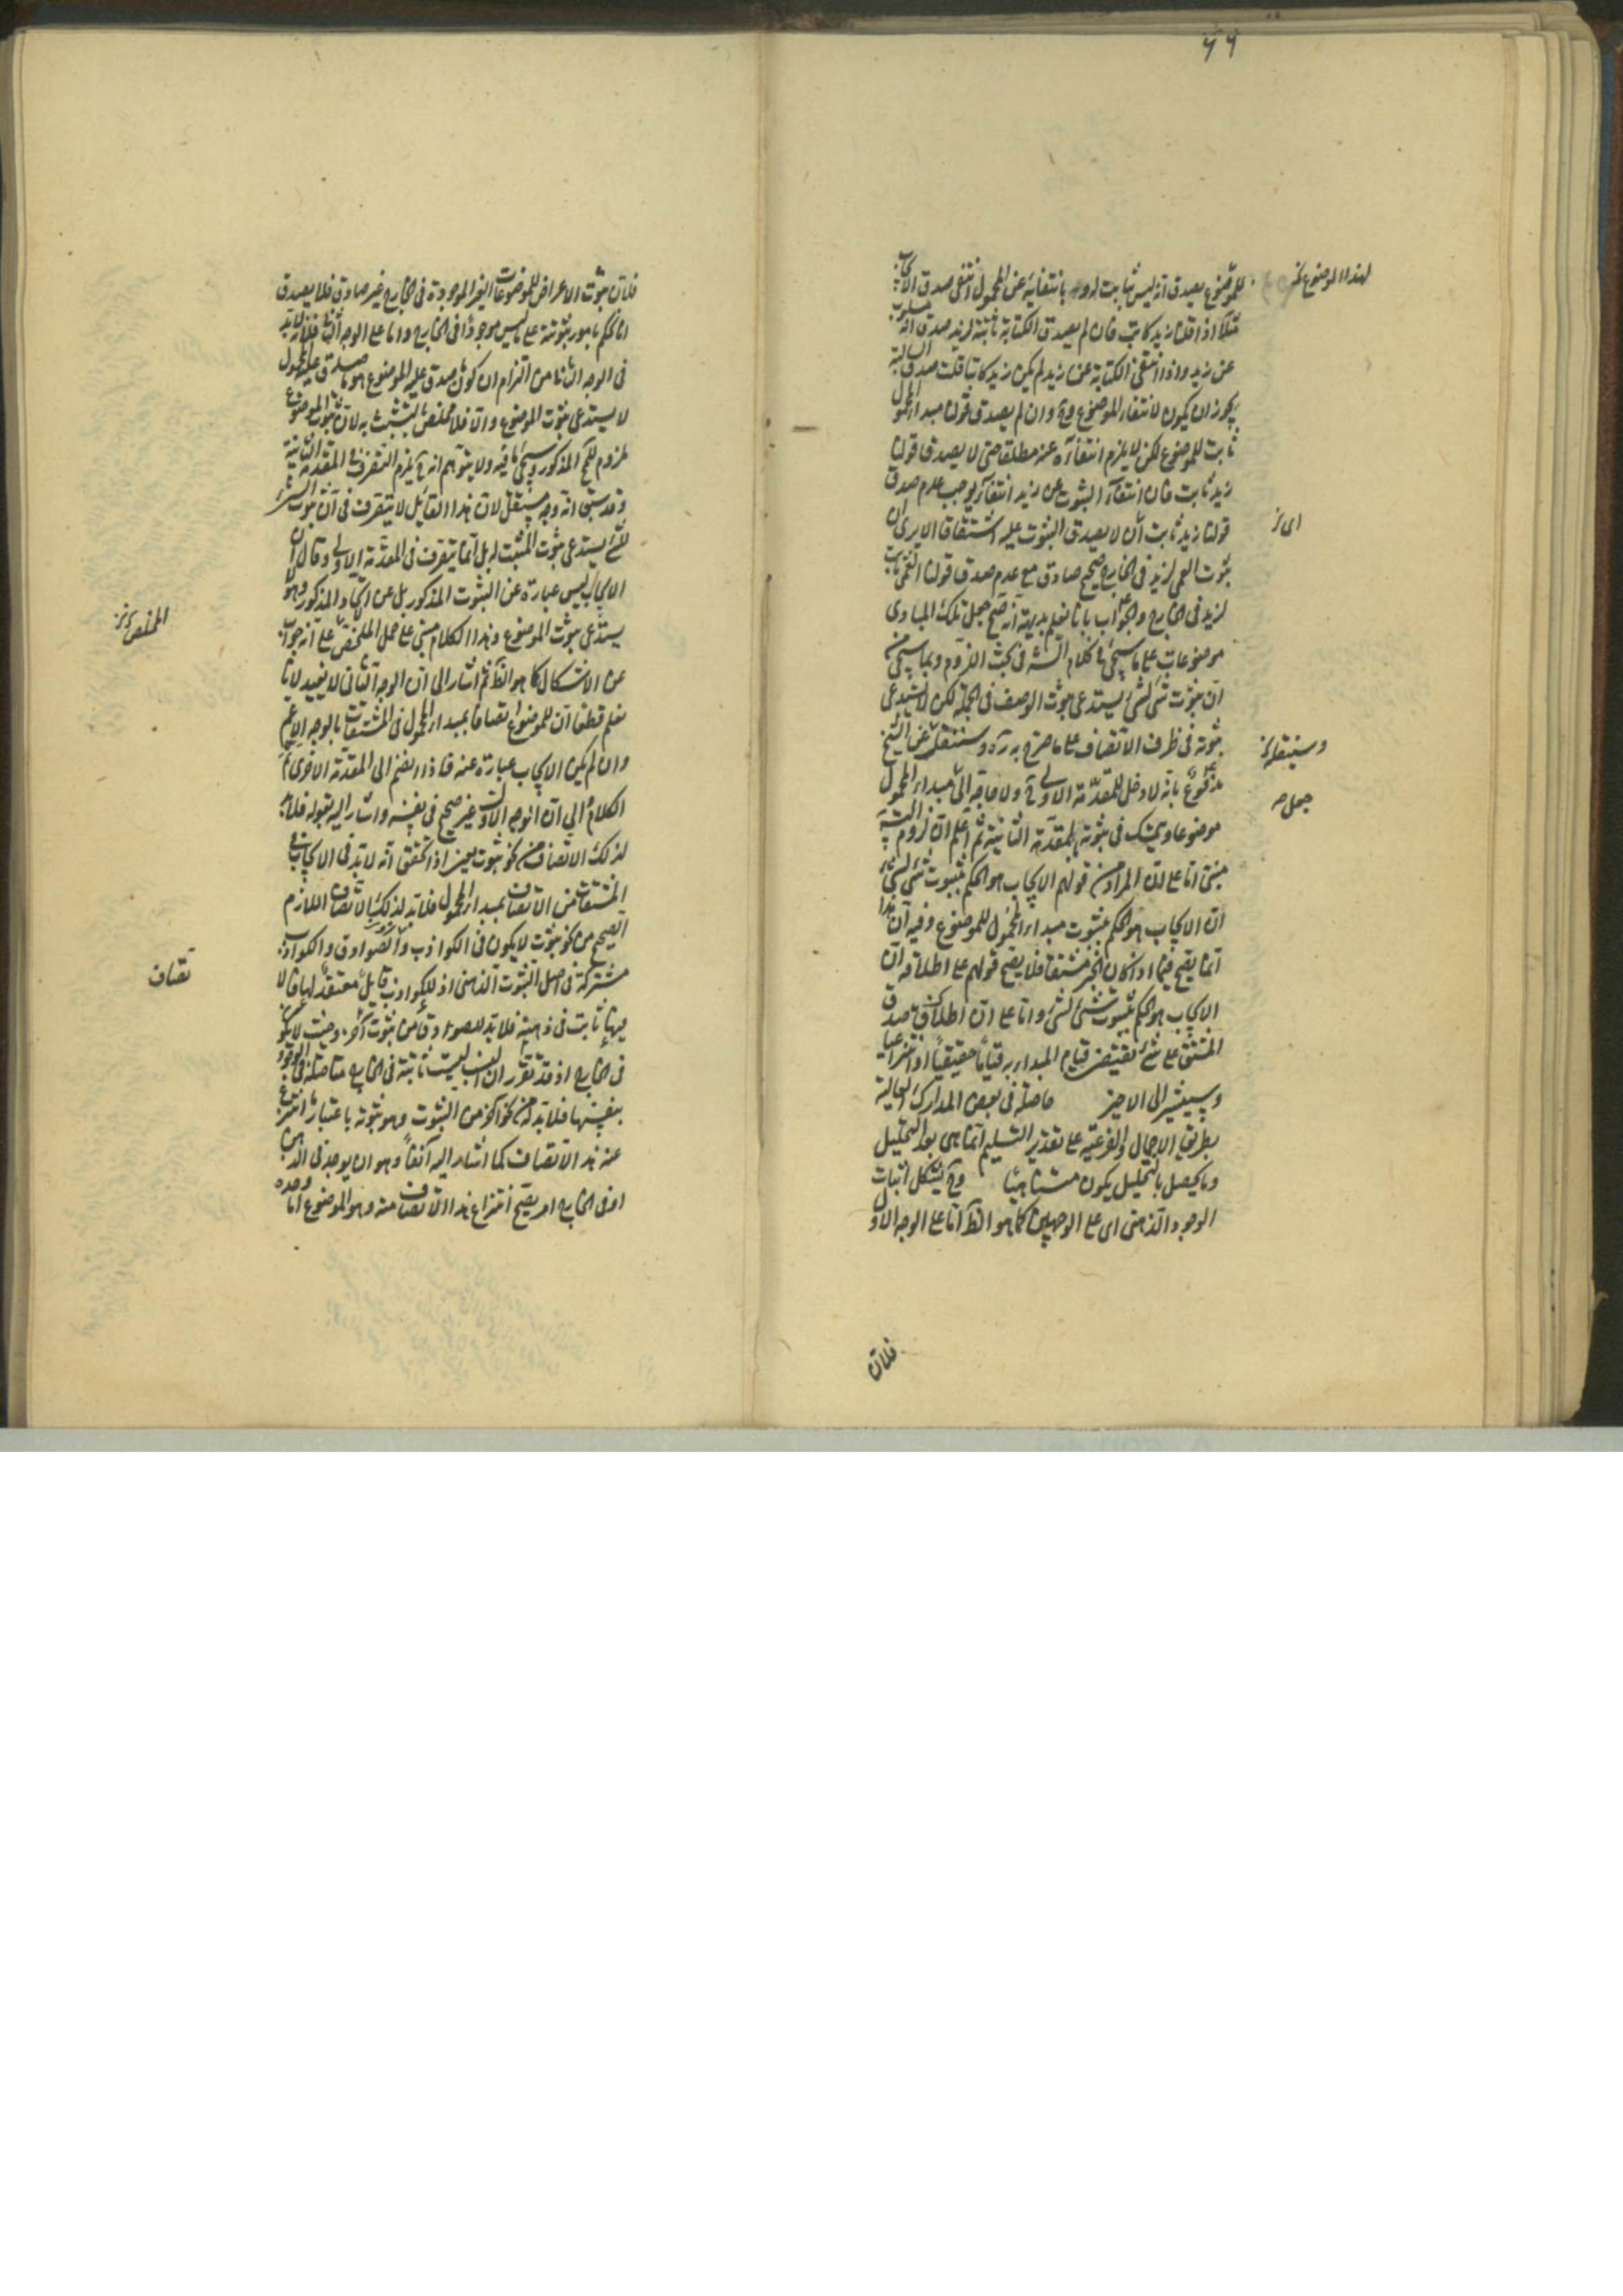 ٦٦
للموضوع يصدق انه ليس بثابت له و بانتفائه عن المحمول انتفى صدق الايجاب
مثلا اذا قلنا زيد كاتب فان لم يصدق الكتابة ثابتة لزيد صدق انه مسلوب
عن زيد واذا انتفى الكتابة عن زيد لم يكن زيد كاتبا قلت صدق السالبة
يجوز ان يكون لانتفاء الموضوع وح وان لم يصدق قولنا مبدء المحمول
ثابت للموضوع لكن لا يلزم انتفاؤه عنه مطلقا حتى لا يصدق قولنا
زيد ثابت فان انتفاء الثبوت عن زيد انتفاء يوجب عدم صدق
قولنا زيد ثابت ان لا يصدق الثبوت عليه اشتقاقا الا يرى ان
ثبوت العمى لزيد فى الخارج صحيح صادق مع عدم صدق قولنا العمى ثابت
لزيد فى الخارج والجواب بانا نعلم بديهة انه صح جعل تلك المبادى
موضوعات على ما سيجئ فى كلام الشه فى بحث اللزوم وبما سيجئ من
ان ثبوت شئ لشئ يستدعى ثبوت الوصف فى الجملة لكن لا يستدعى
ثبوته فى ظرف الاتصاف على ما صرح به ره وسننقله عن الشيخ
مدفوع بانه لا دخل للمقدمة الاولى ح ولا حاجة الى مبدء المحمول
موضوعا ويتمسك فى ثبوته بالمقدمة الثانية ثم اعلم ان لزوم
مبنى اما على ان المراد من قولهم الايجاب هو الحكم بثبوت شئ لشئ
ان الايجاب هو الحكم بثبوت مبدء المحمول للموضوع وفيه ان هذا
انما يصح فيما اذا كان الخبر مشتقا فلا يصح قولهم على اطلاقه ان
الايجاب هو الحكم بثبوت شئ لشئ واما على ان اطلاق صدق
المشتق على شئ يقتضى قيام المبدء به قياما حقيقيا او انتزاعيا
وسيشير الى الاخير حاصلة فى بعض المدارك العالية
بطريق الاجمال والفرعية على تقدير التسليم انما هى بعد التحليل
وما يحصل بالتحليل يكون متناهيا وح يشكل اثبات
الوجود الذهنى اى على الوجهين كما هو الظ اما على الوجه الاول
لهذا الموضوع
اى
وسينقله
جعل
فلان
فلان ثبوت الاعراض للموضوعات الغير الموجودة فى الخارج غير صادق فلا يصدق
الحكم بامور ثبوتية على ما ليس موجودا فى الخارج واما على الوجه الثانى فلانه لا بد
فى الوجه الثانى من التزام ان كون ما صدق عليه الموضوع هو ما صدق عليه المحمول
لا يستدعى ثبوت الموضوع والا فلا مخلص بالتشبث به لان ثبوت الموضوع
ملزوم للمح المذكور وسيجئ ما فيه ولا يتوهم انه ح يلزم التصرف فى المقدمة الثانية
وقد سبق انه وجه مستقل لان هذا القائل لا يتصرف فى ان ثبوت الشئ
للشئ يستدعى ثبوت المثبت له بل انما يتصرف فى المقدمة الاولى وقال ان
الايجاب ليس عبارة عن الثبوت المذكور بل عن الاتحاد المذكور وهو لا
يستدعى ثبوت الموضوع وهذا الكلام مبنى على حمل الملخص على انه جواب
عن الاشكال كما هو الظ ثم اشار الى ان الوجه الثانى لا يفيد لانا
نعلم قطعا ان للموضوع اتصافا بمبدء المحمول فى المشتقات بالوجه الاعم
وان لم يكن الايجاب عبارة عنه فاذا انضم الى المقدمة الاخرى تم
الكلام الى ان الوجه الاول غير صحيح فى نفسه واشار اليه بقوله فلا بد
لذلك الاتصاف من نحو ثبوت يعنى اذا تحقق انه لا بد فى الايجاب فى
المشتقات من الاتصاف بمبدء المحمول فلا بد لذلك الاتصاف اللازم
الصحيح من نحو ثبوت لا يكون فى الكواذب والصوادق والكواذب
مشتركة فى اصل الثبوت الذهنى اذ للكواذب قايل معتقد لها
فيها ثابت فى ذهنه فلا بد للصوادق من ثبوت آخر وحيث لا يكون
فى الخارج اذ قد تقرر ان النسب ليست ثابتة فى الخارج متاصلة فى الوجود
بنفسها فلا بد من نحو آخر من الثبوت وهو ثبوته باعتبار ما انتزع
عنه هذا الاتصاف كما اشار اليه آنفا وهو ان يوجد فى الذهن
او فى الخارج امر يصح انتزاع هذا الاتصاف منه وهو الموضوع اما وحده
الملخص
تصاف